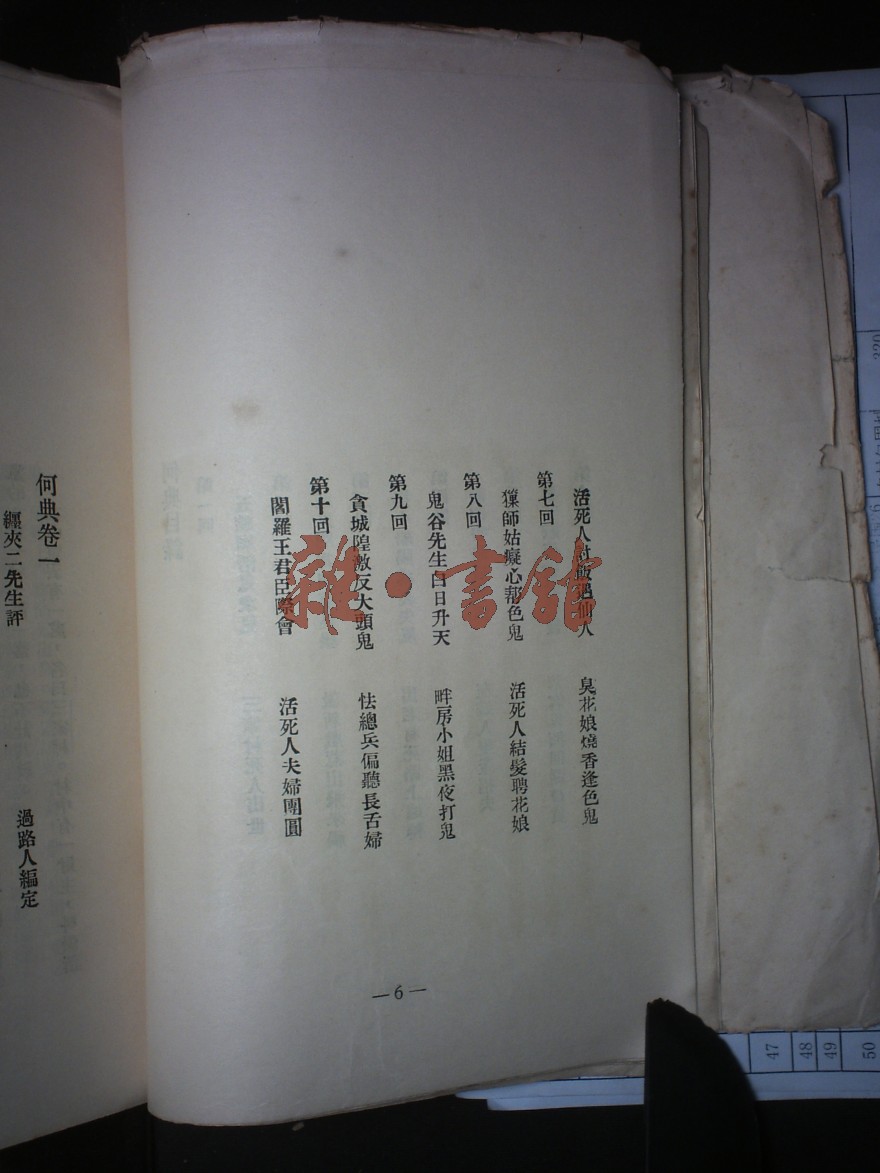 活死人討飯遇仙人　臭花娘燒香逢色鬼
第七回
騍師姑癡心帮色鬼　活死人結髮聘花娘
第八回
鬼谷先生白日升天　畔房小姐黑夜打鬼
第九回
貪城隍激反大頭鬼　怯總兵偏聽長舌婦
第十回
閻羅王君臣際會　活死人夫婦團圓
—6—
何典卷一
纏夾二先生評　過路人編定
雜·書館
47
48
49
50
320